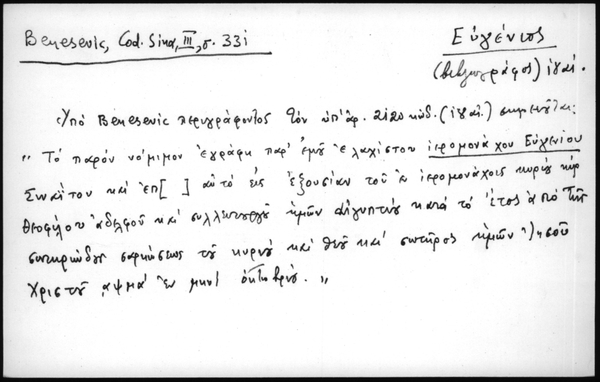 Benesevic, Cod. Sina, III, σ. 331
Εὐγένιος
(βιβλιογράφος) ιζ´ αἰ.
Ὑπὸ Benesevic περιγράφοντος τὸν ὑπ' ἀρ. 2120 κώδ. (ιζ´ αἰ.) σημειοῦται:
"Τὸ παρὸν νόμιμον ἐγράφη παρ' ἐμοῦ ἐλαχίστου ἱερομονάχου Εὐγενίου
Σιναΐτου καὶ ἐπ[ ] αὐτὸ εἰς ἐξουσίαν τοῦ ἐν ἱερομονάχοις κυρίου κὺρ
Θεοφίλου ἀδελφοῦ καὶ συλλειτουργοῦ ἡμῶν Αἰγυπτίου κατὰ τὸ ἔτος ἀπὸ τῆς
σαρκώσεως τοῦ κυρίου καὶ θεοῦ καὶ σωτῆρος ἡμῶν Ἰησοῦ
Χριστοῦ ͵αψμα´ ἐν μηνὶ ὀκτωβρίου. "